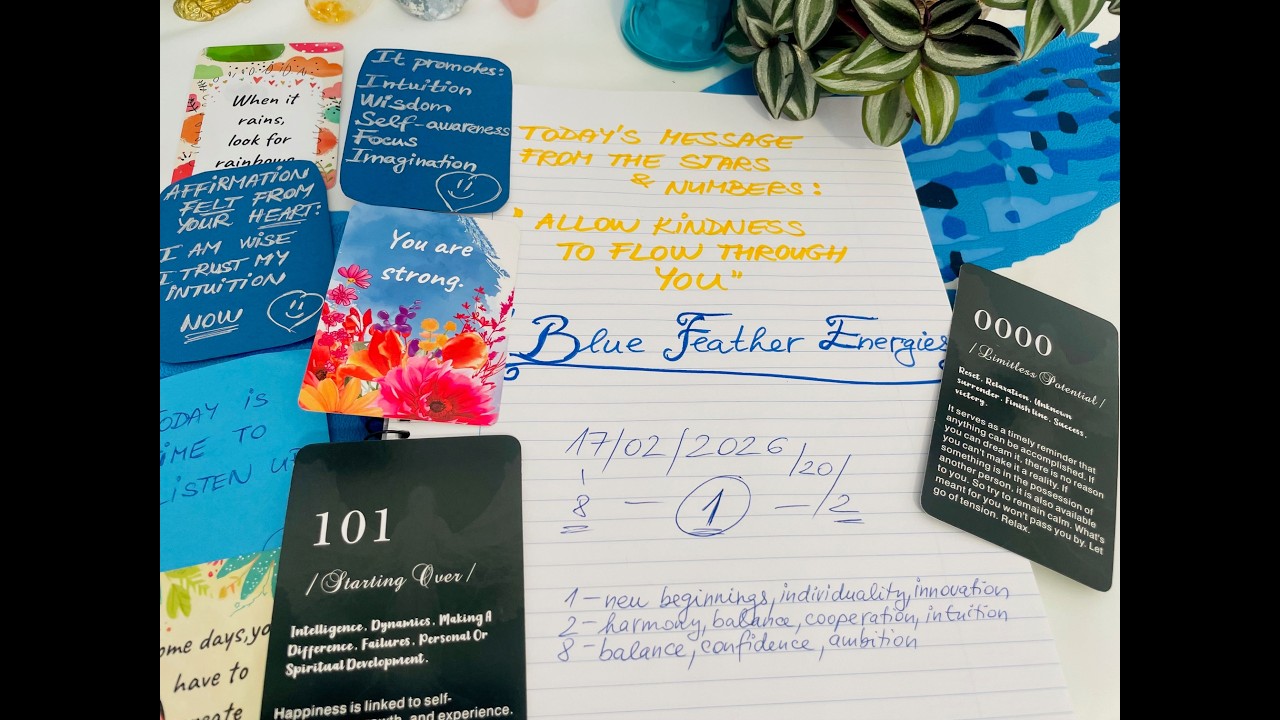 When it
rains,
look for
rainbows
It promotes:
Intuition
Wisdom
Self-awareness
Focus
Imagination
AFFIRMATION
FELT FROM
YOUR HEART:
I AM WISE
I TRUST MY
INTUITION
NOW
You are
strong.
TODAY IS
TIME TO
LISTEN UP
ome days, yo
have to
create
101
/Starting Over/
Intelligence. Dynamics. Making A
Difference. Failures. Personal Or
Spiritual Development.
Happiness is linked to self-
growth, and experience.
TODAY'S MESSAGE
FROM THE STARS
& NUMBERS:
"ALLOW KINDNESS
TO FLOW THROUGH
YOU"
Blue Feather Energies
17/02/2026/20/
8 - 1 - /2
1 - new beginnings, individuality, innovation
2 - harmony, balance, cooperation, intuition
8 - balance, confidence, ambition
0000
/Limitless Potential/
Reset. Relaxation. Unknown
surrender. Finish line. Success.
victory.
It serves as a timely reminder that
anything can be accomplished. If
you can dream it, there is no reason
you can't make it a reality. If
something is in the possession of
another person, it is also available
to you. So try to remain calm. What's
meant for you won't pass you by. Let
go of tension. Relax.